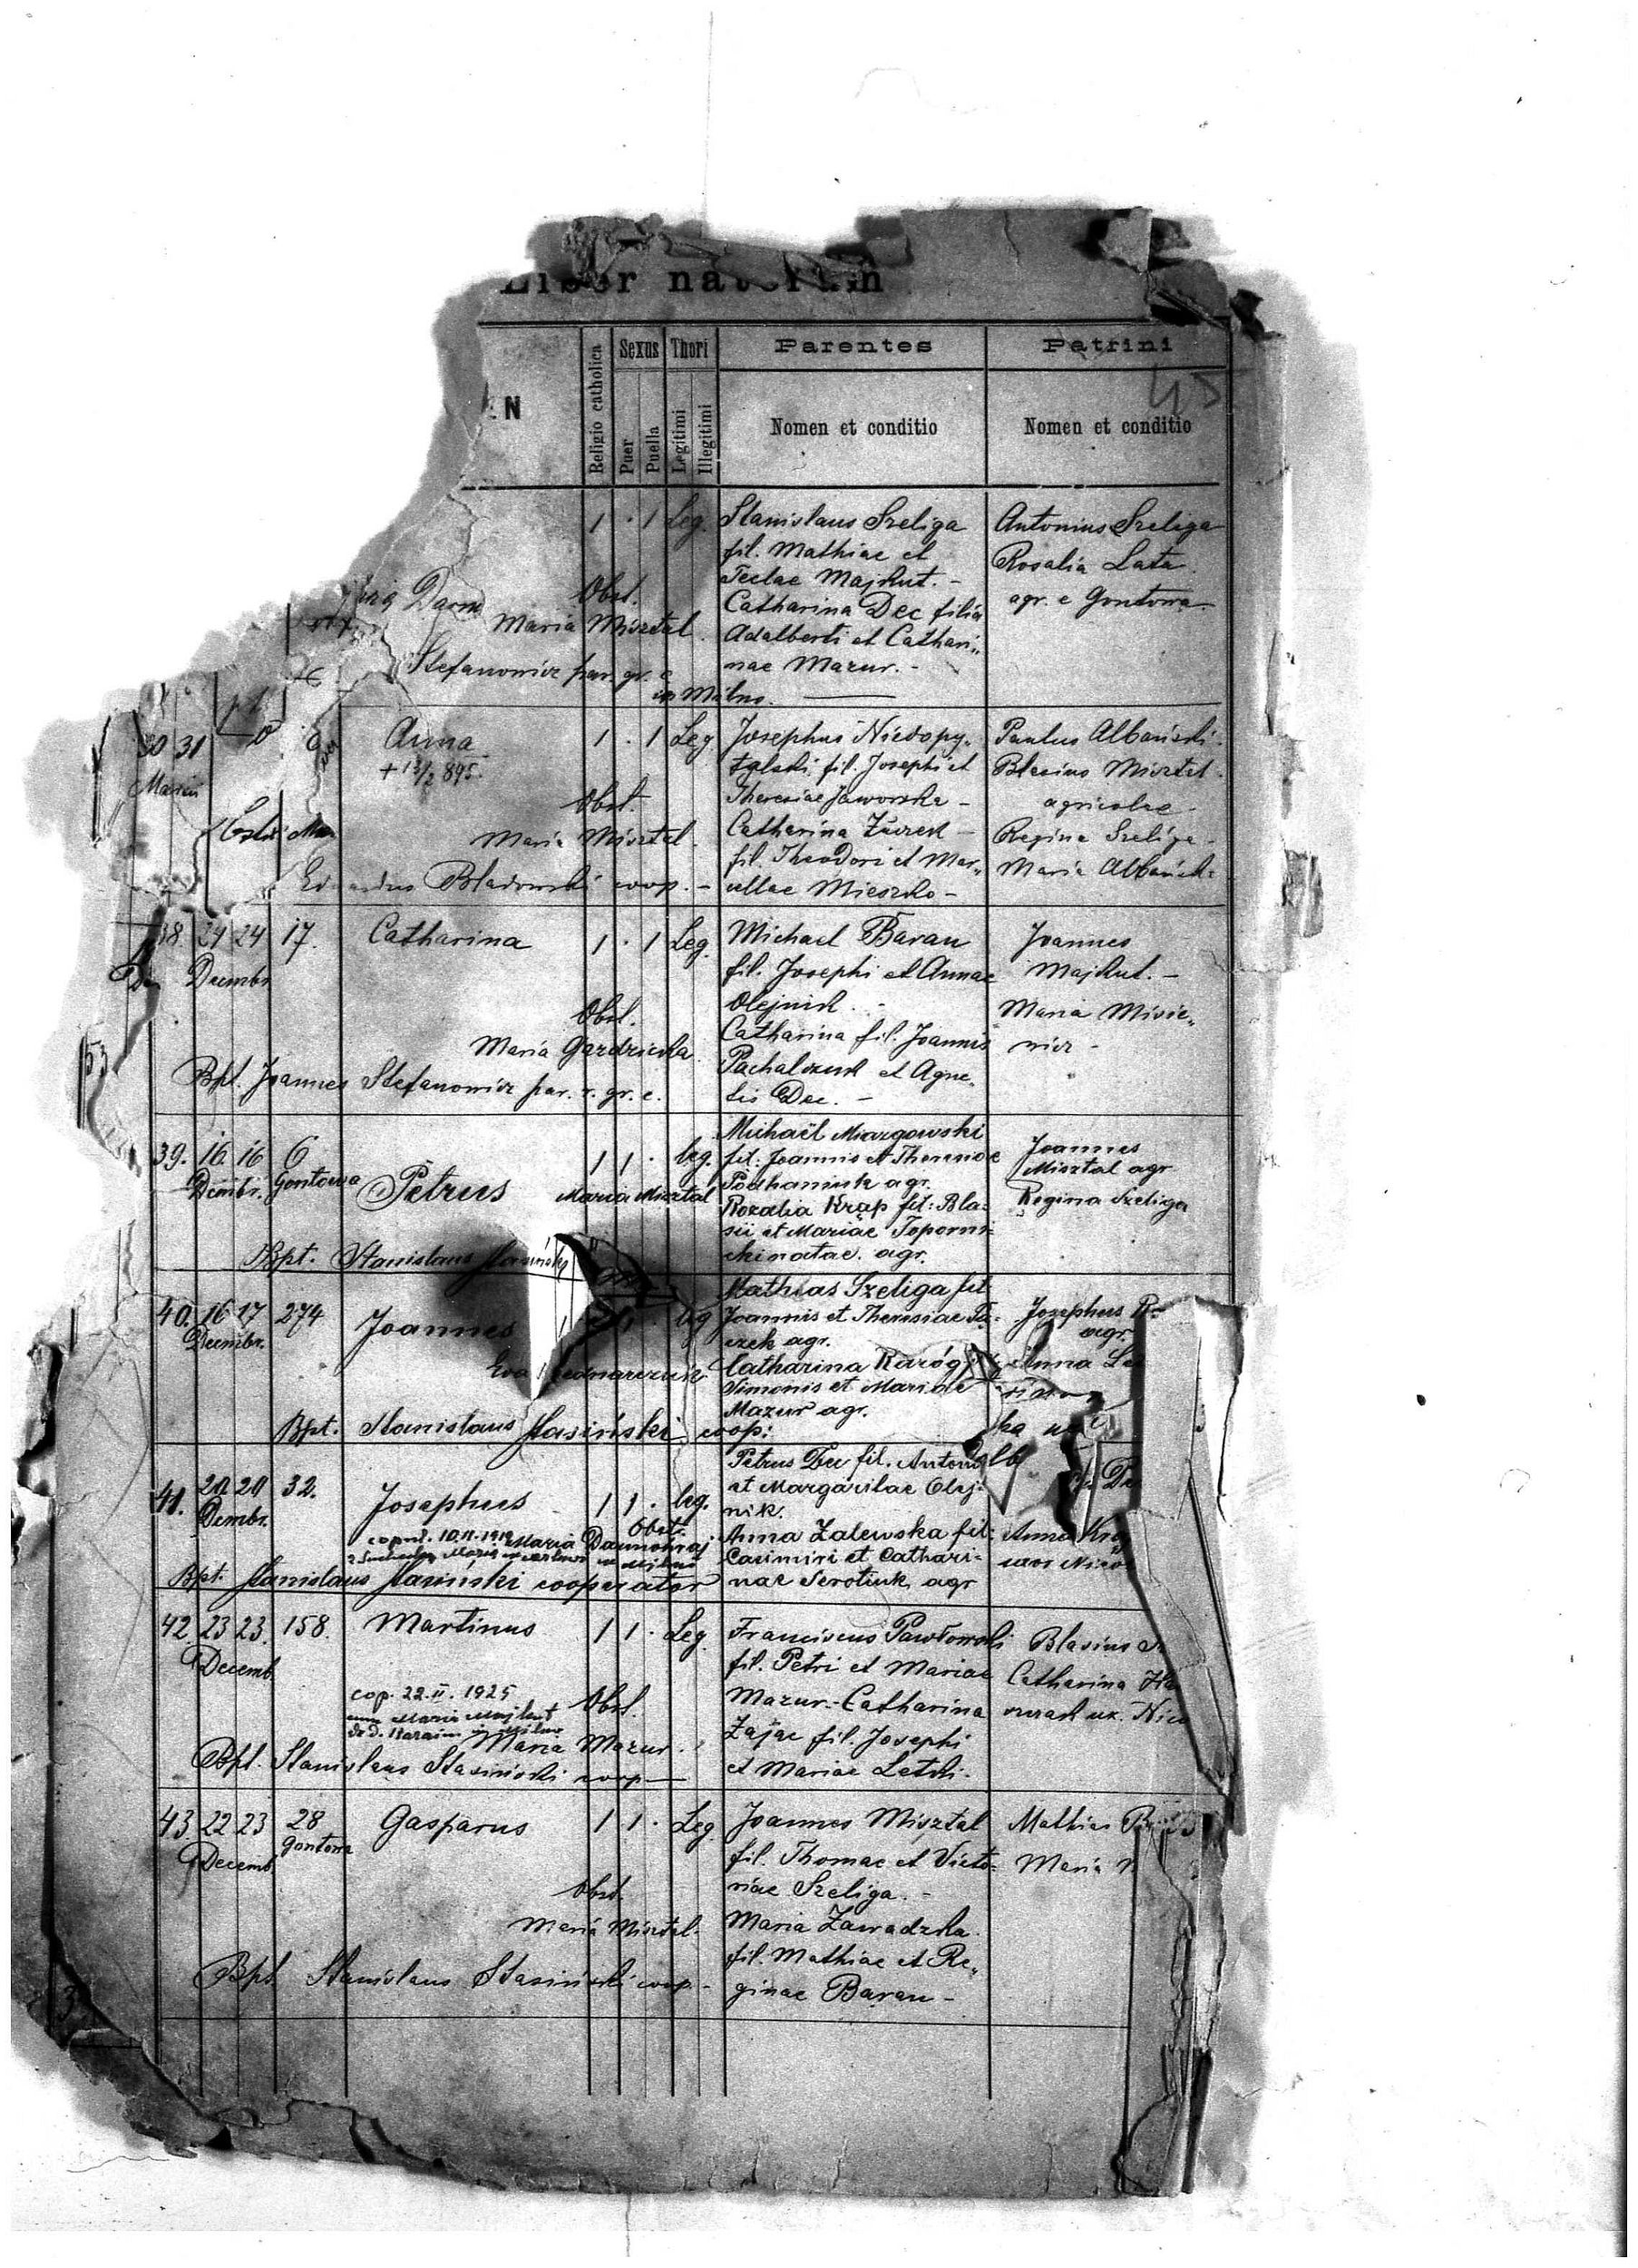 Liber natorum
Religio catholica
Sexus
Puer
Puella
Thori
Legitimi
Illegitimi
Parentes
Nomen et conditio
Patrini
Nomen et conditio
45
1 . 1 Leg.
Obst.
Maria Misztal.
Stefanowicz par. gr. c.
in Milno.
Stanislaus Szeliga
fil. Mathiae et
Teclae Majkut. -
Catharina Dec filia
Adalberti et Cathari„
nae Mazur. -
Antonius Szeliga
Rosalia Lata.
agr. e Gontowa
30 31
Martii
Anna
+ 13/2 895.
1 . 1 Leg
Obst.
Maria Misztal.
Eduardus Bladowski coop. -
Josephus Niedopy„
talski fil. Josephi et
Theresiae Jaworska -
Catharina Żurek -
fil. Theodori et Mar„
cellae Mieszko -
Paulus Albański.
Blasius Misztal.
agricolae -
Regina Szeliga -
Maria Albańsk:
38. 24 24 17.
Decembr
Catharina
1 . 1 Leg.
Obst.
Maria Gazdzicka.
Bpt. Joannes Stefanowicz par. r. gr. c.
Michael Baran
fil. Josephi et Annae
Olejnik. -
Catharina fil. Joannis
Pachalczuk et Agne„
tis Dec. -
Joannes
Majkut. -
Maria Misie„
wicz -
39. 16 16 6
Dcmbr. Gontowa
Petrus
1 1 . leg.
Maria Misztal
Bpt. Stanislaus Stasiński
Michaël Miazgowski
fil: Joannis et Theresiae
Podhaniuk agr.
Rozalia Krąp fil: Bla-
sii et Mariae Toporni-
cki natae. agr.
Joannes
Misztal agr
Regina Szeliga
40. 16 17 274
Decmbr.
Joannes
leg
Eva Bednarczuk
Bpt. Stanislaus Stasiński coop:
Mathias Szeliga fil
Joannis et Theresiae
czek agr.
Catharina Karóg
Simonis et Mariae
Mazur agr.
Josephus
agr.
Anna
41. 20 20 32.
Dcmbr.
Josephus
1 1 . leg.
Obst.
Maria
Bpt. Stanislaus Stasiński cooperator
Petrus Dec fil. Antoni
et Margaritae Olej-
nik.
Anna Zalewska fil:
Casimiri et Cathari-
nae Serotiuk agr
Anna
uxor
42 23 23. 158.
Decemb
Martinus
1 1 . Leg.
cop. 22.II.1925
cum Maria Majkut
Obst.
Maria Mazur.
Bpt. Stanislaus Stasiński coop -
Franciscus Pawłowski
fil. Petri et Mariae
Mazur. - Catharina
Zając fil. Josephi
et Mariae Letki.
Blasius
Catharina
43. 22 23 28
Decemb Gontowa
Gasparus
1 1 . Leg.
Obst.
Maria Misztal.
Bpt Stanislaus Stasiński coop. -
Joannes Misztal
fil. Thomae et Victo-
riae Szeliga. -
Maria Zawadzka.
fil. Mathiae et Re„
ginae Baran -
Mathias
Maria